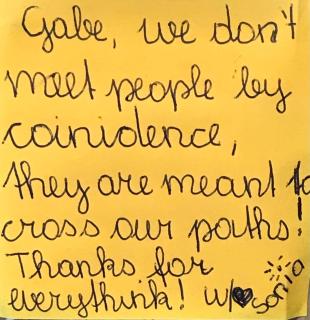 Gabe, we don't
meet people by
coinidence,
they are meant to
cross our paths!
Thanks for
everythink! w/♥ Sonia